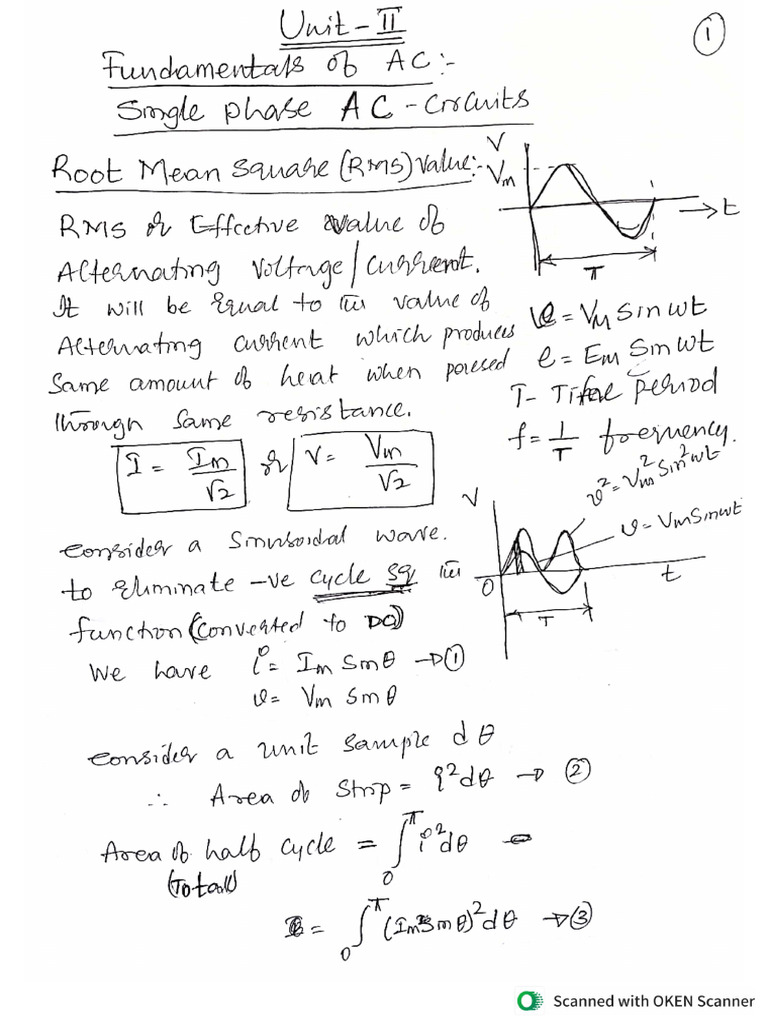 Unit-II
1
Fundamentals of AC:-
Single phase AC-Circuits
Root Mean Square (RMS) Value:-
V
Vm
t
T
RMS or Effective Value of
Alternating Voltage/Current.
It will be Equal to the value of
Alternating current which produces
Same amount of heat when passed
through same resistance.
I = Im/√2 or V = Vm/√2
e = Vm Sin wt
e = Em Sin wt
T - Time period
f = 1/T frequency.
v² = Vm² Sin² wt
v = Vm Sin wt
V
0
t
T
Consider a Sinusoidal wave.
to Eliminate -ve cycle sq the
function (Converted to DC)
We have i = Im Sin θ → ①
v = Vm Sin θ
Consider a unit sample dθ
∴ Area of Strip = i²dθ → ②
Area of half cycle = ∫₀^π i²dθ -
(Total)
= ∫₀^π (Im Sin θ)² dθ → ③
Scanned with OKEN Scanner